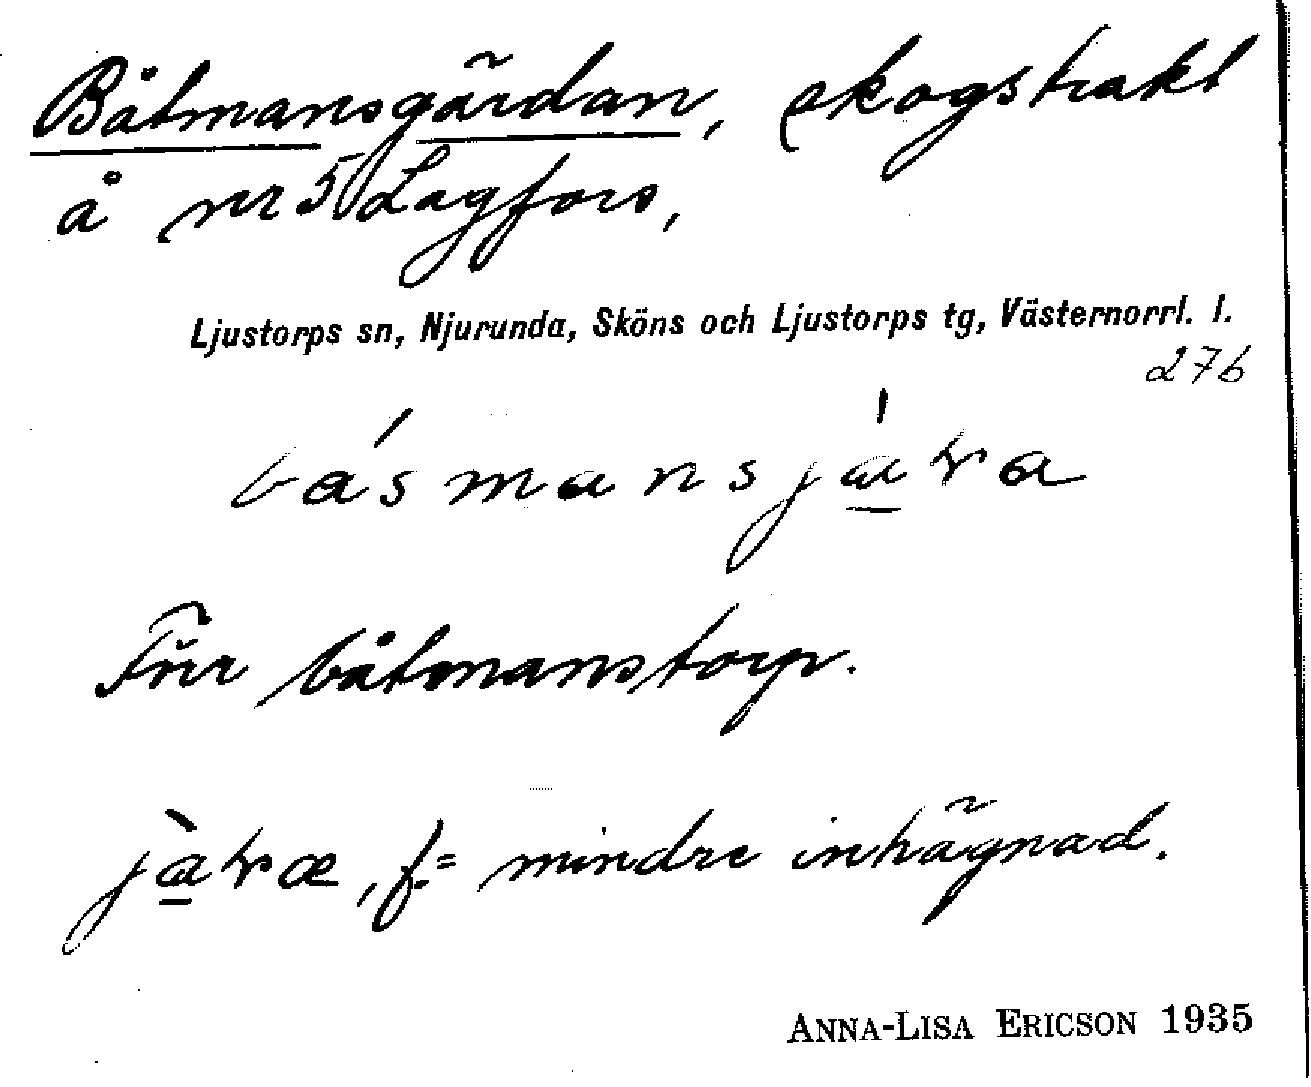 Båtmansgärdan, skogstrakt
å nr 5 Lagfors,
Ljustorps sn, Njurunda, Sköns och Ljustorps tg, Västernorrl. l.
276
Förr båtmanstorp.
f.= mindre inhägnad.
ANNA-LISA ERICSON 1935